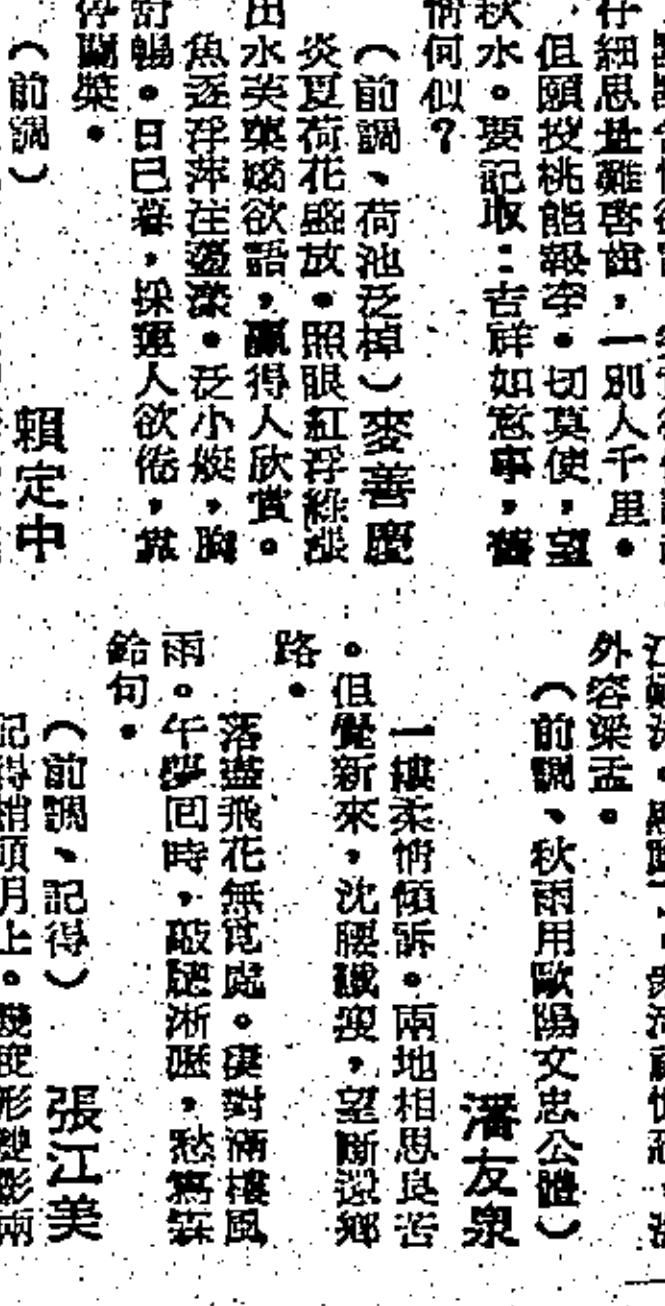 仔細思量難啓齒，一別人千里。
，但願投桃能報李。切莫使，望
秋水。要記取：吉祥如意事，舊
情何似？
（前調、荷池泛棹）麥善慶
炎夏荷花盛放。照眼紅浮綠漲
出水芙蕖嬌欲語，贏得人欣賞。
魚逐浮萍在盪漾。泛小艇，胸
舒暢。日已暮，採蓮人欲倦，靠
停蘭槳。
（前調）　賴定中
外容梁孟。
（前調、秋雨用歐陽文忠公體）
潘友泉
一縷柔情傾訴。兩地相思良苦
。但覺新來，沈腰減瘦，望斷還鄉
路。
落盡飛花無覓處。漠對滿樓風
雨。午夢回時，敲聽淅瀝，愁寫霖
鈴句。
（前調、記得）　張江美
記得梢頭月上。雙雙形雙影兩